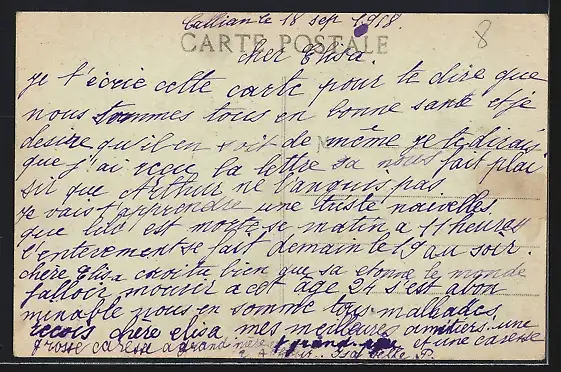 Callian le 18 sep 1918
8
CARTE POSTALE
cher Elisa.
je t'écrie cette carte pour te dire que
nous sommes tous en bonne santé et je
desire qu'il en soit de même je te dirais
que j'ai reçu ta lettre sa nous fait plai
sir que Arthur ne t'anouis pas
je vais t'apprendre une triste nouvelles
que lili est morte se matin a 11 heures
l'enterement se fait demain le 19 au soir.
chere Elisa croit tu bien que sa etonne le monde
falloir mourir a cet âge 24 s'est abon
minable nous en somme tous mallades,
reçois chere elisa mes meilleures amitiers. une
grosse caresse a grand mère grand et une caresse
a Arthur. Isabelle P.